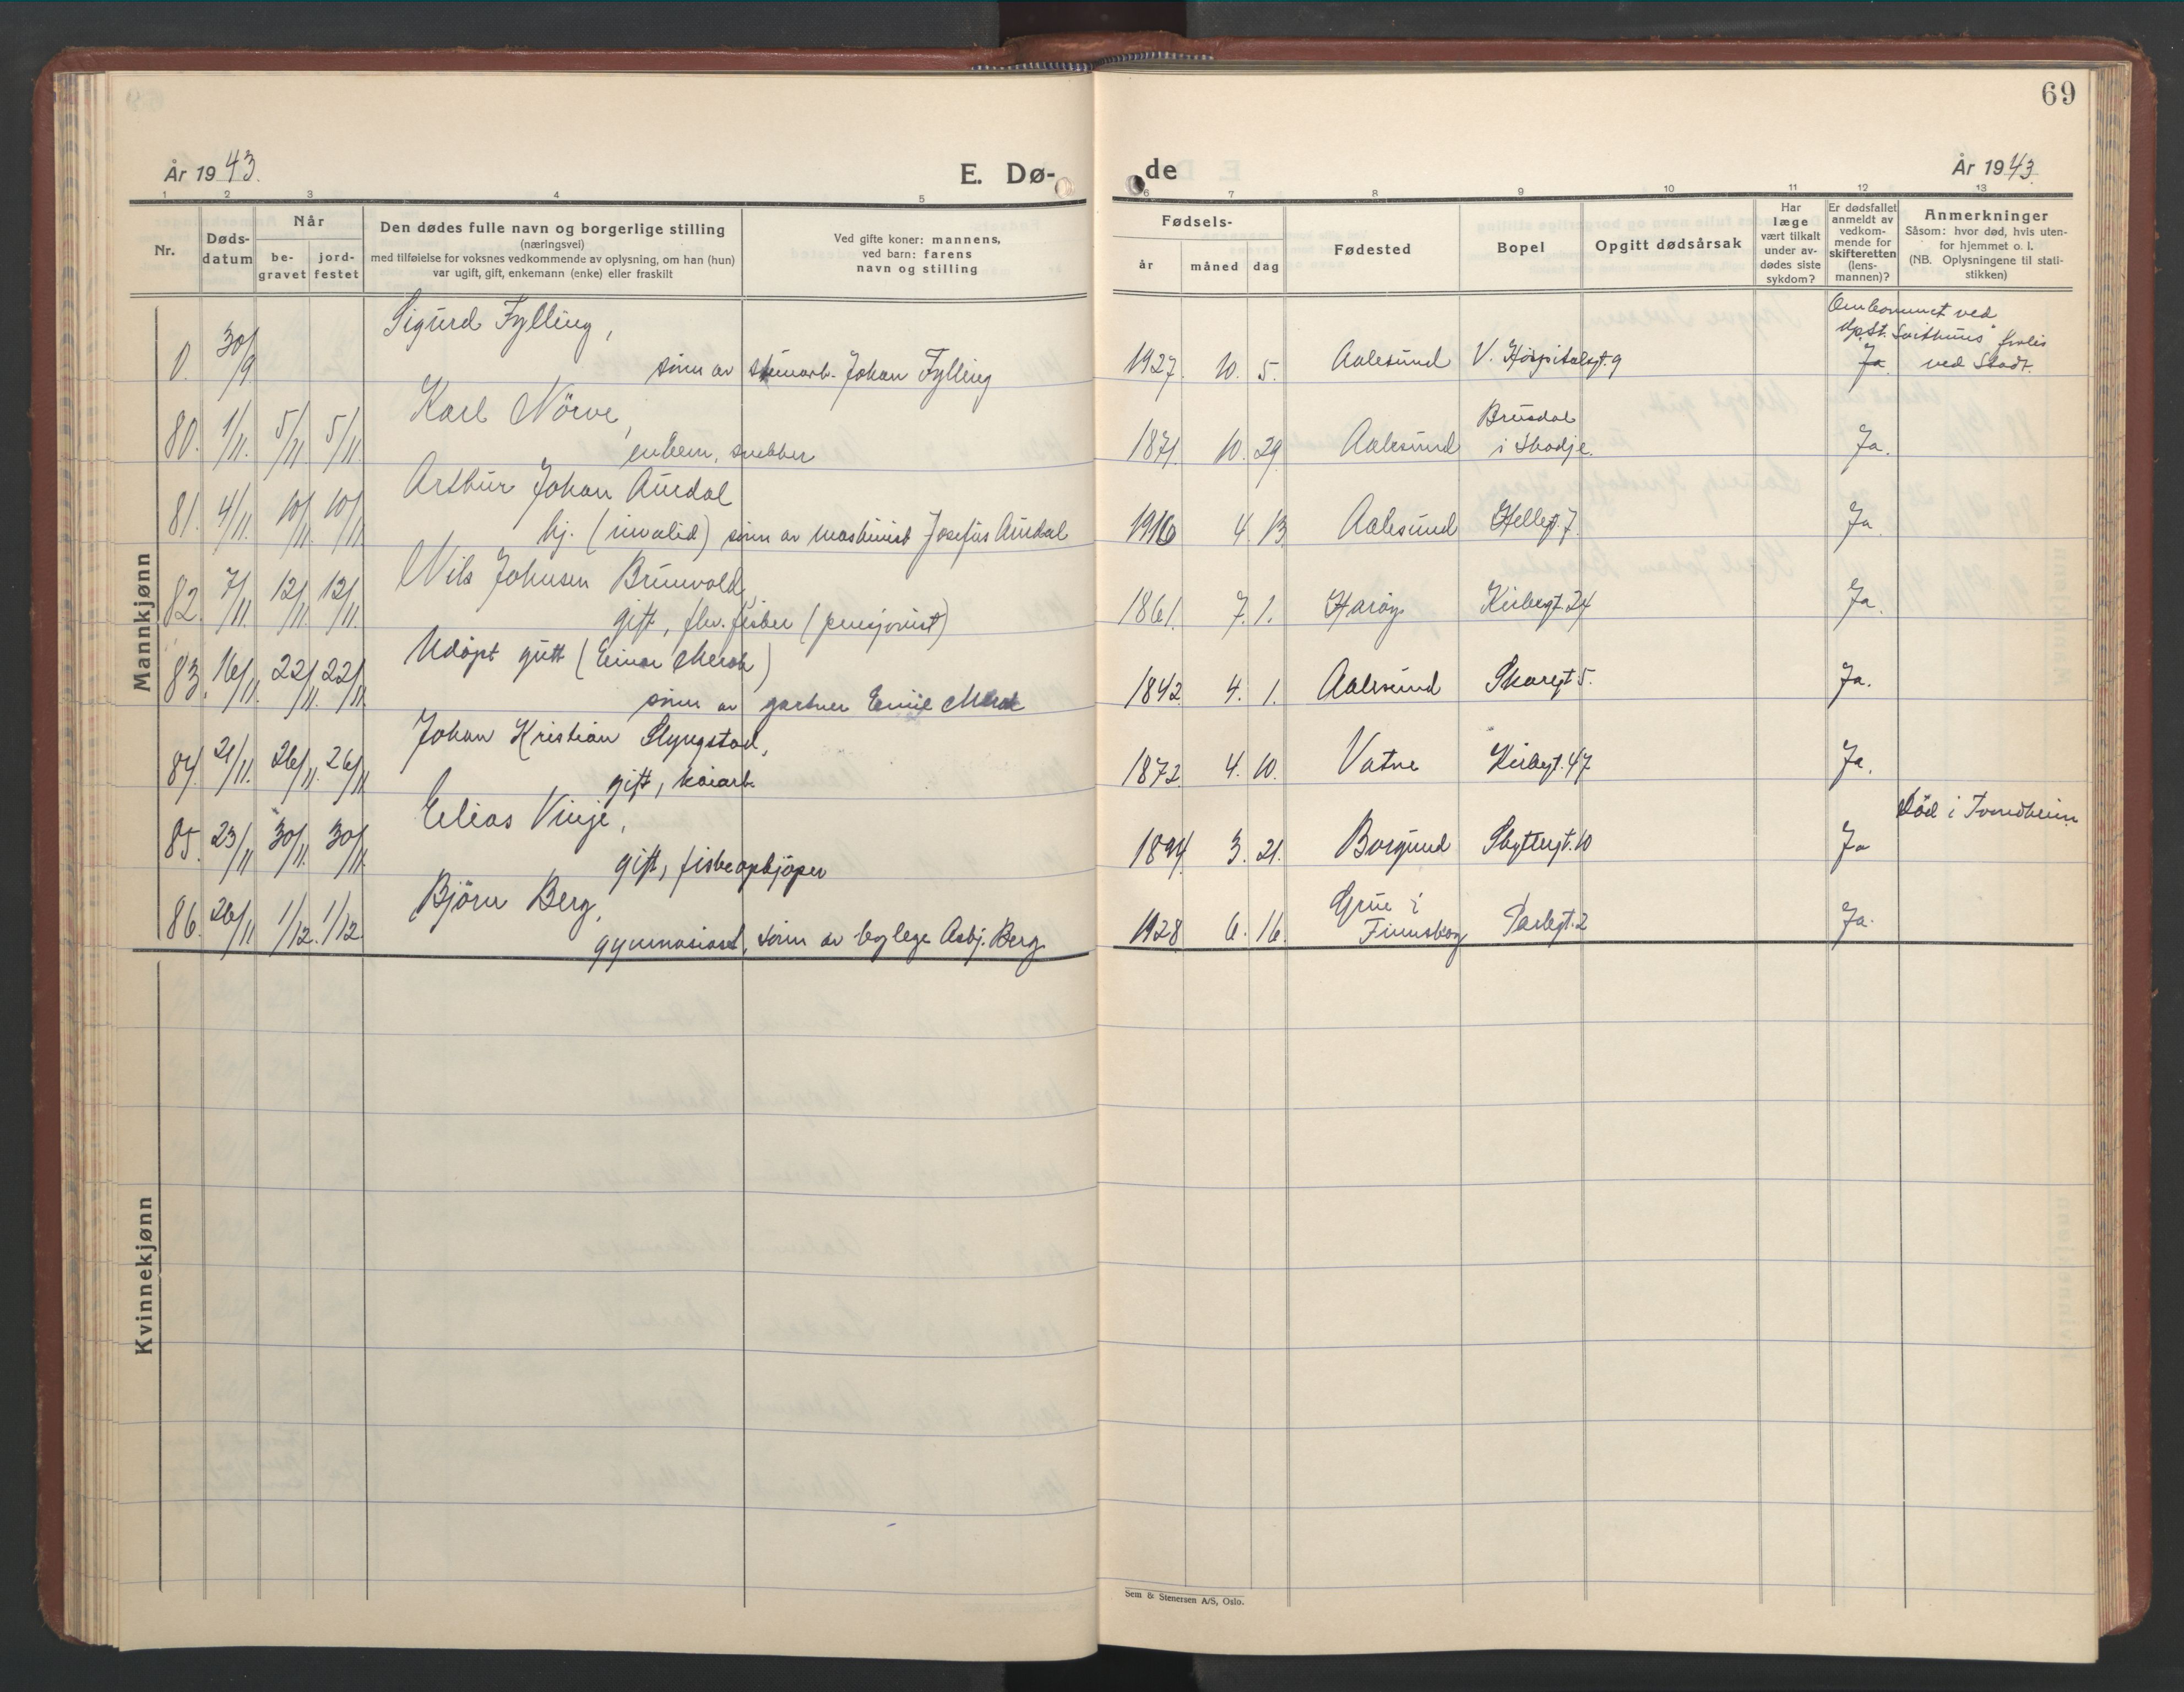 69
År 1943.
E. Dø-
de
År 1943.
1 2 3 4 5 6 7 8 9 10 11 12 13
Nr.
Døds-
datum
Når
be-
gravet
jord-
festet
Den dødes fulle navn og borgerlige stilling
(næringsvei)
med tilføielse for voksnes vedkommende av oplysning, om han (hun)
var ugift, gift, enkemann (enke) eller fraskilt
Ved gifte koner: mannens,
ved barn: farens
navn og stilling
Fødsels-
år
måned
dag
Fødested
Bopel
Opgitt dødsårsak
Har
læge
vært tilkalt
under av-
dødes siste
sykdom?
Er dødsfallet
anmeldt av
vedkom-
mende for
skifteretten
(lens-
mannen)?
Anmerkninger
Såsom: hvor død, hvis uten-
for hjemmet o. l.
(NB. Oplysningene til stati-
stikken)
Mannkjønn
0. 30/9 Sigurd Fylling,
sønn av stuearb. Johan Fylling
1927. 10. 5. Aalesund V. Hospitalsgt. 9 Ja.
Omkommet ved
"St. Svithuns" forlis
ved Stadt.
80. 1/11. 5/11. 5/11. Karl Nörve,
enkem. snekker
1871. 10. 29. Aalesund
Brusdal
i Skodje. Ja.
81. 4/11. 10/11. 10/11. Arthur Johan Aurdal
hj. (invalid) sönn av maskinist Josefus Aurdal
1916 4. 13. Aalesund Hellegt. 7. Ja.
82. 7/11. 12/11. 12/11. Nils Johnsen Brunvold,
gift, fhv. fisker (pensjonist)
1861. 7. 1. Haröy Kirkegt. 24 Ja.
83. 16/11. 22/11. 22/11. Udöpt gutt (Einar Merok)
sönn av gartner Merok
1842. 4. 1. Aalesund Skaregt. 5. Ja.
84. 21/11. 26/11. 26/11. Johan Kristian Slyngstad,
gift, kaiarb.
1872. 4. 10. Vatne Kirkegt. 47 Ja.
85. 23/11 30/11. 30/11. Elias Vinje,
gift, fiskeopkjöper
1894. 3. 21. Borgund Skyttergt. 10 Ja
Död i Trondheim
86. 26/11 1/12. 1/12. Björn Berg,
gymnasiast, sönn av lege Asbj. Berg.
1928. 6. 16.
Grue i
Finnskog Parkgt. 2 Ja.
Kvinnekjønn
Sem & Stenersen A/S, Oslo.